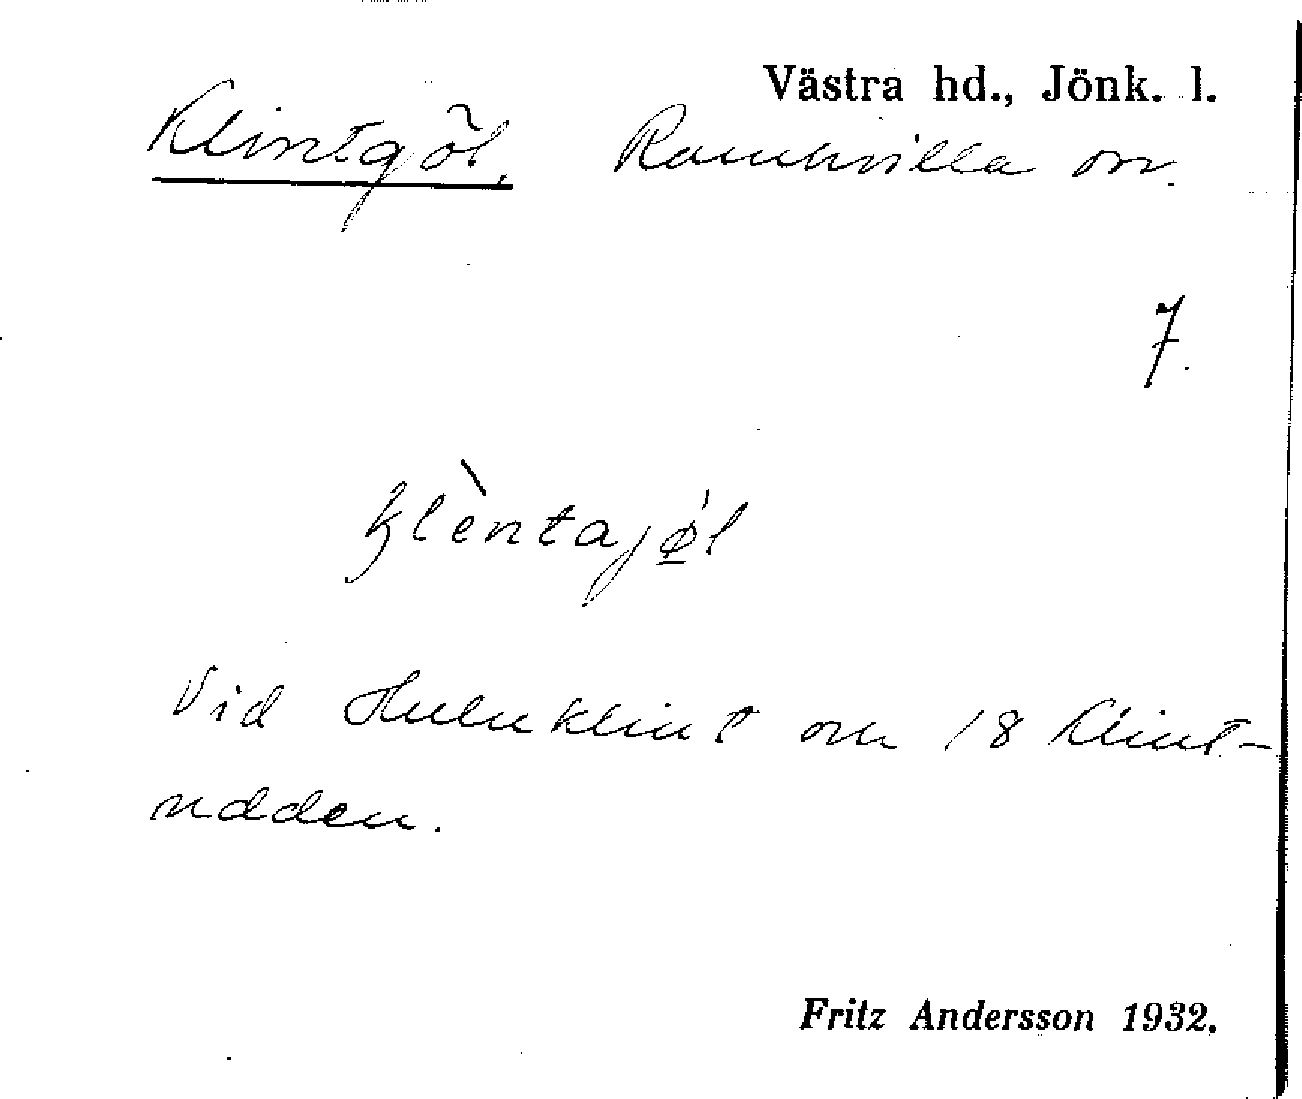 Västra hd., Jönk. l.
Klintgöl. Ramkvilla sn.
7.
klèntajǿ̲l
Vid Huluklint om 18 Klint-
udden.
Fritz Andersson 1932.